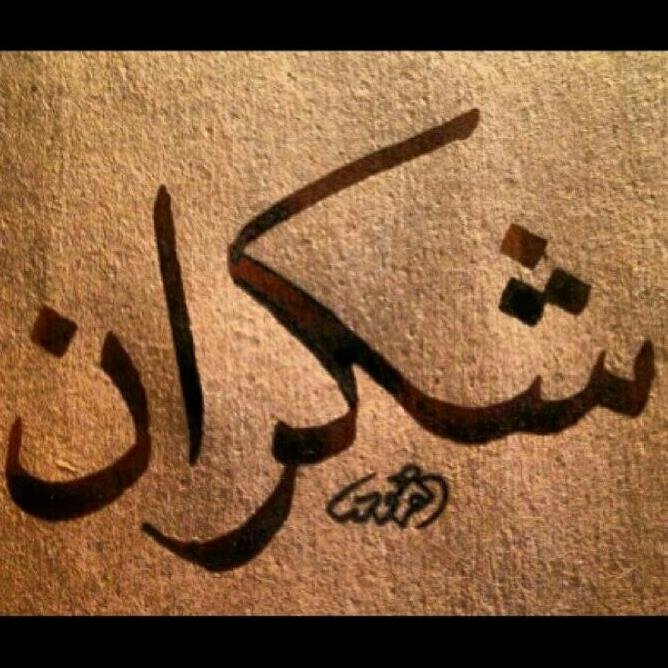 شكران